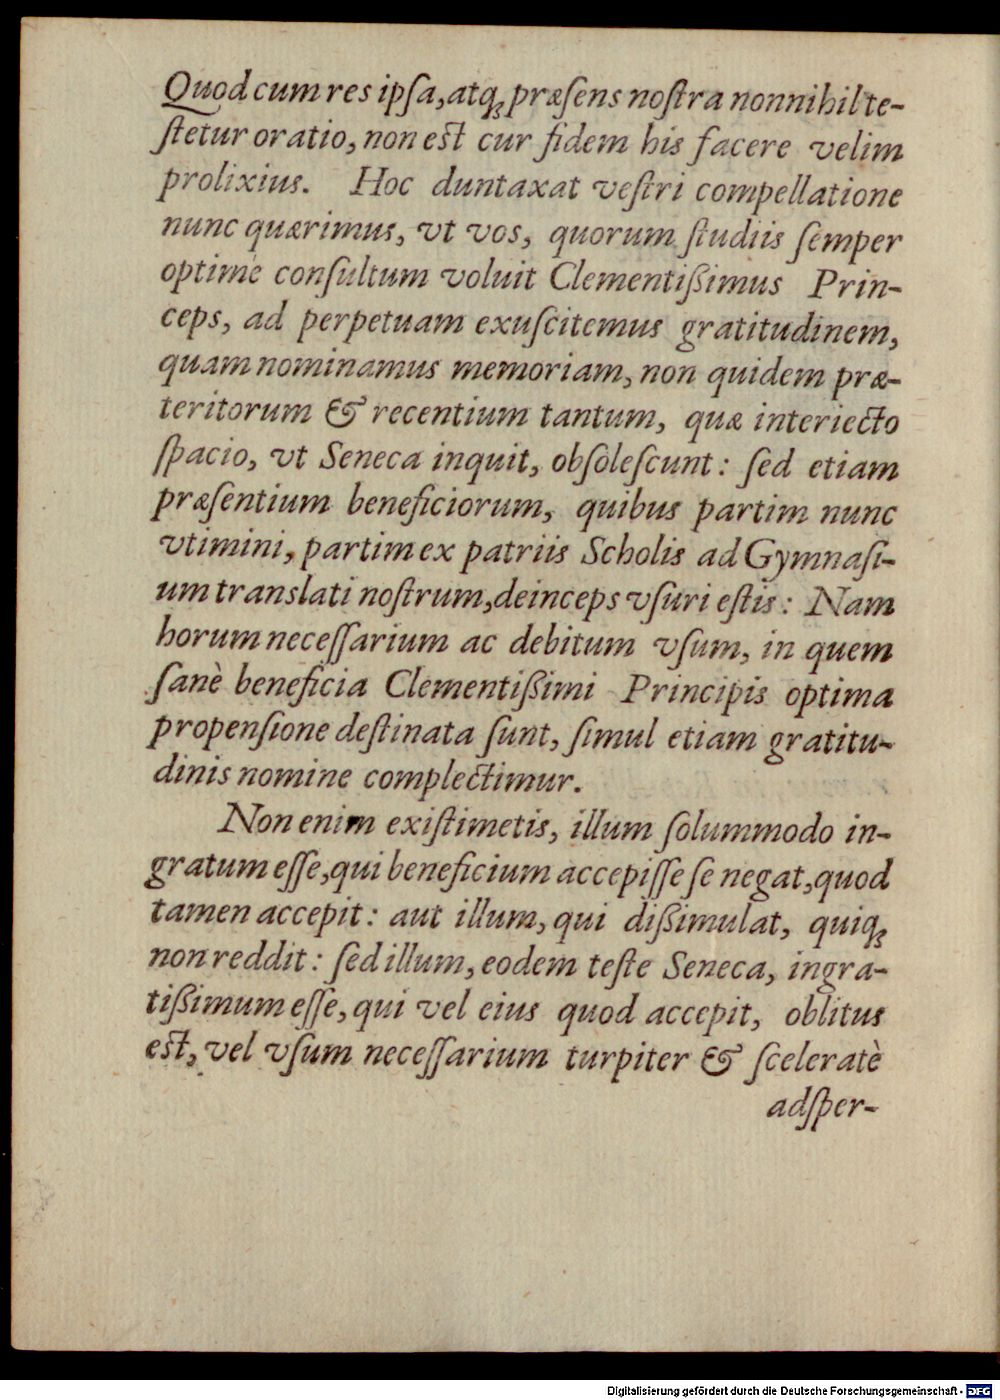 Quod cum res ipſa, atq; præſens noſtra nonnihil te-
ſtetur oratio, non est cur fidem his facere velim
prolixius. Hoc duntaxat veſtri compellatione
nunc quærimus, vt vos, quorum ſtudiis ſemper
optimè conſultum voluit Clementißimus Prin-
ceps, ad perpetuam exuſcitemus gratitudinem,
quam nominamus memoriam, non quidem præ-
teritorum & recentium tantum, quæ interiecto
ſpacio, vt Seneca inquit, obſoleſcunt: ſed etiam
præſentium beneficiorum, quibus partim nunc
vtimini, partim ex patriis Scholis ad Gymnaſi-
um translati noſtrum, deinceps vſuri eſtis: Nam
horum neceſſarium ac debitum vſum, in quem
ſanè beneficia Clementißimi Principis optima
propenſione deſtinata ſunt, ſimul etiam gratitu-
dinis nomine complectimur.
Non enim exiſtimetis, illum ſolummodo in-
gratum eſſe, qui beneficium accepiſſe ſe negat, quod
tamen accepit: aut illum, qui dißimulat, quiq;
non reddit: ſed illum, eodem teſte Seneca, ingra-
tißimum eſſe, qui vel eius quod accepit, oblitus
est, vel vſum neceſſarium turpiter & ſceleratè
adſper-
Digitalisierung gefördert durch die Deutsche Forschungsgemeinschaft - DFG